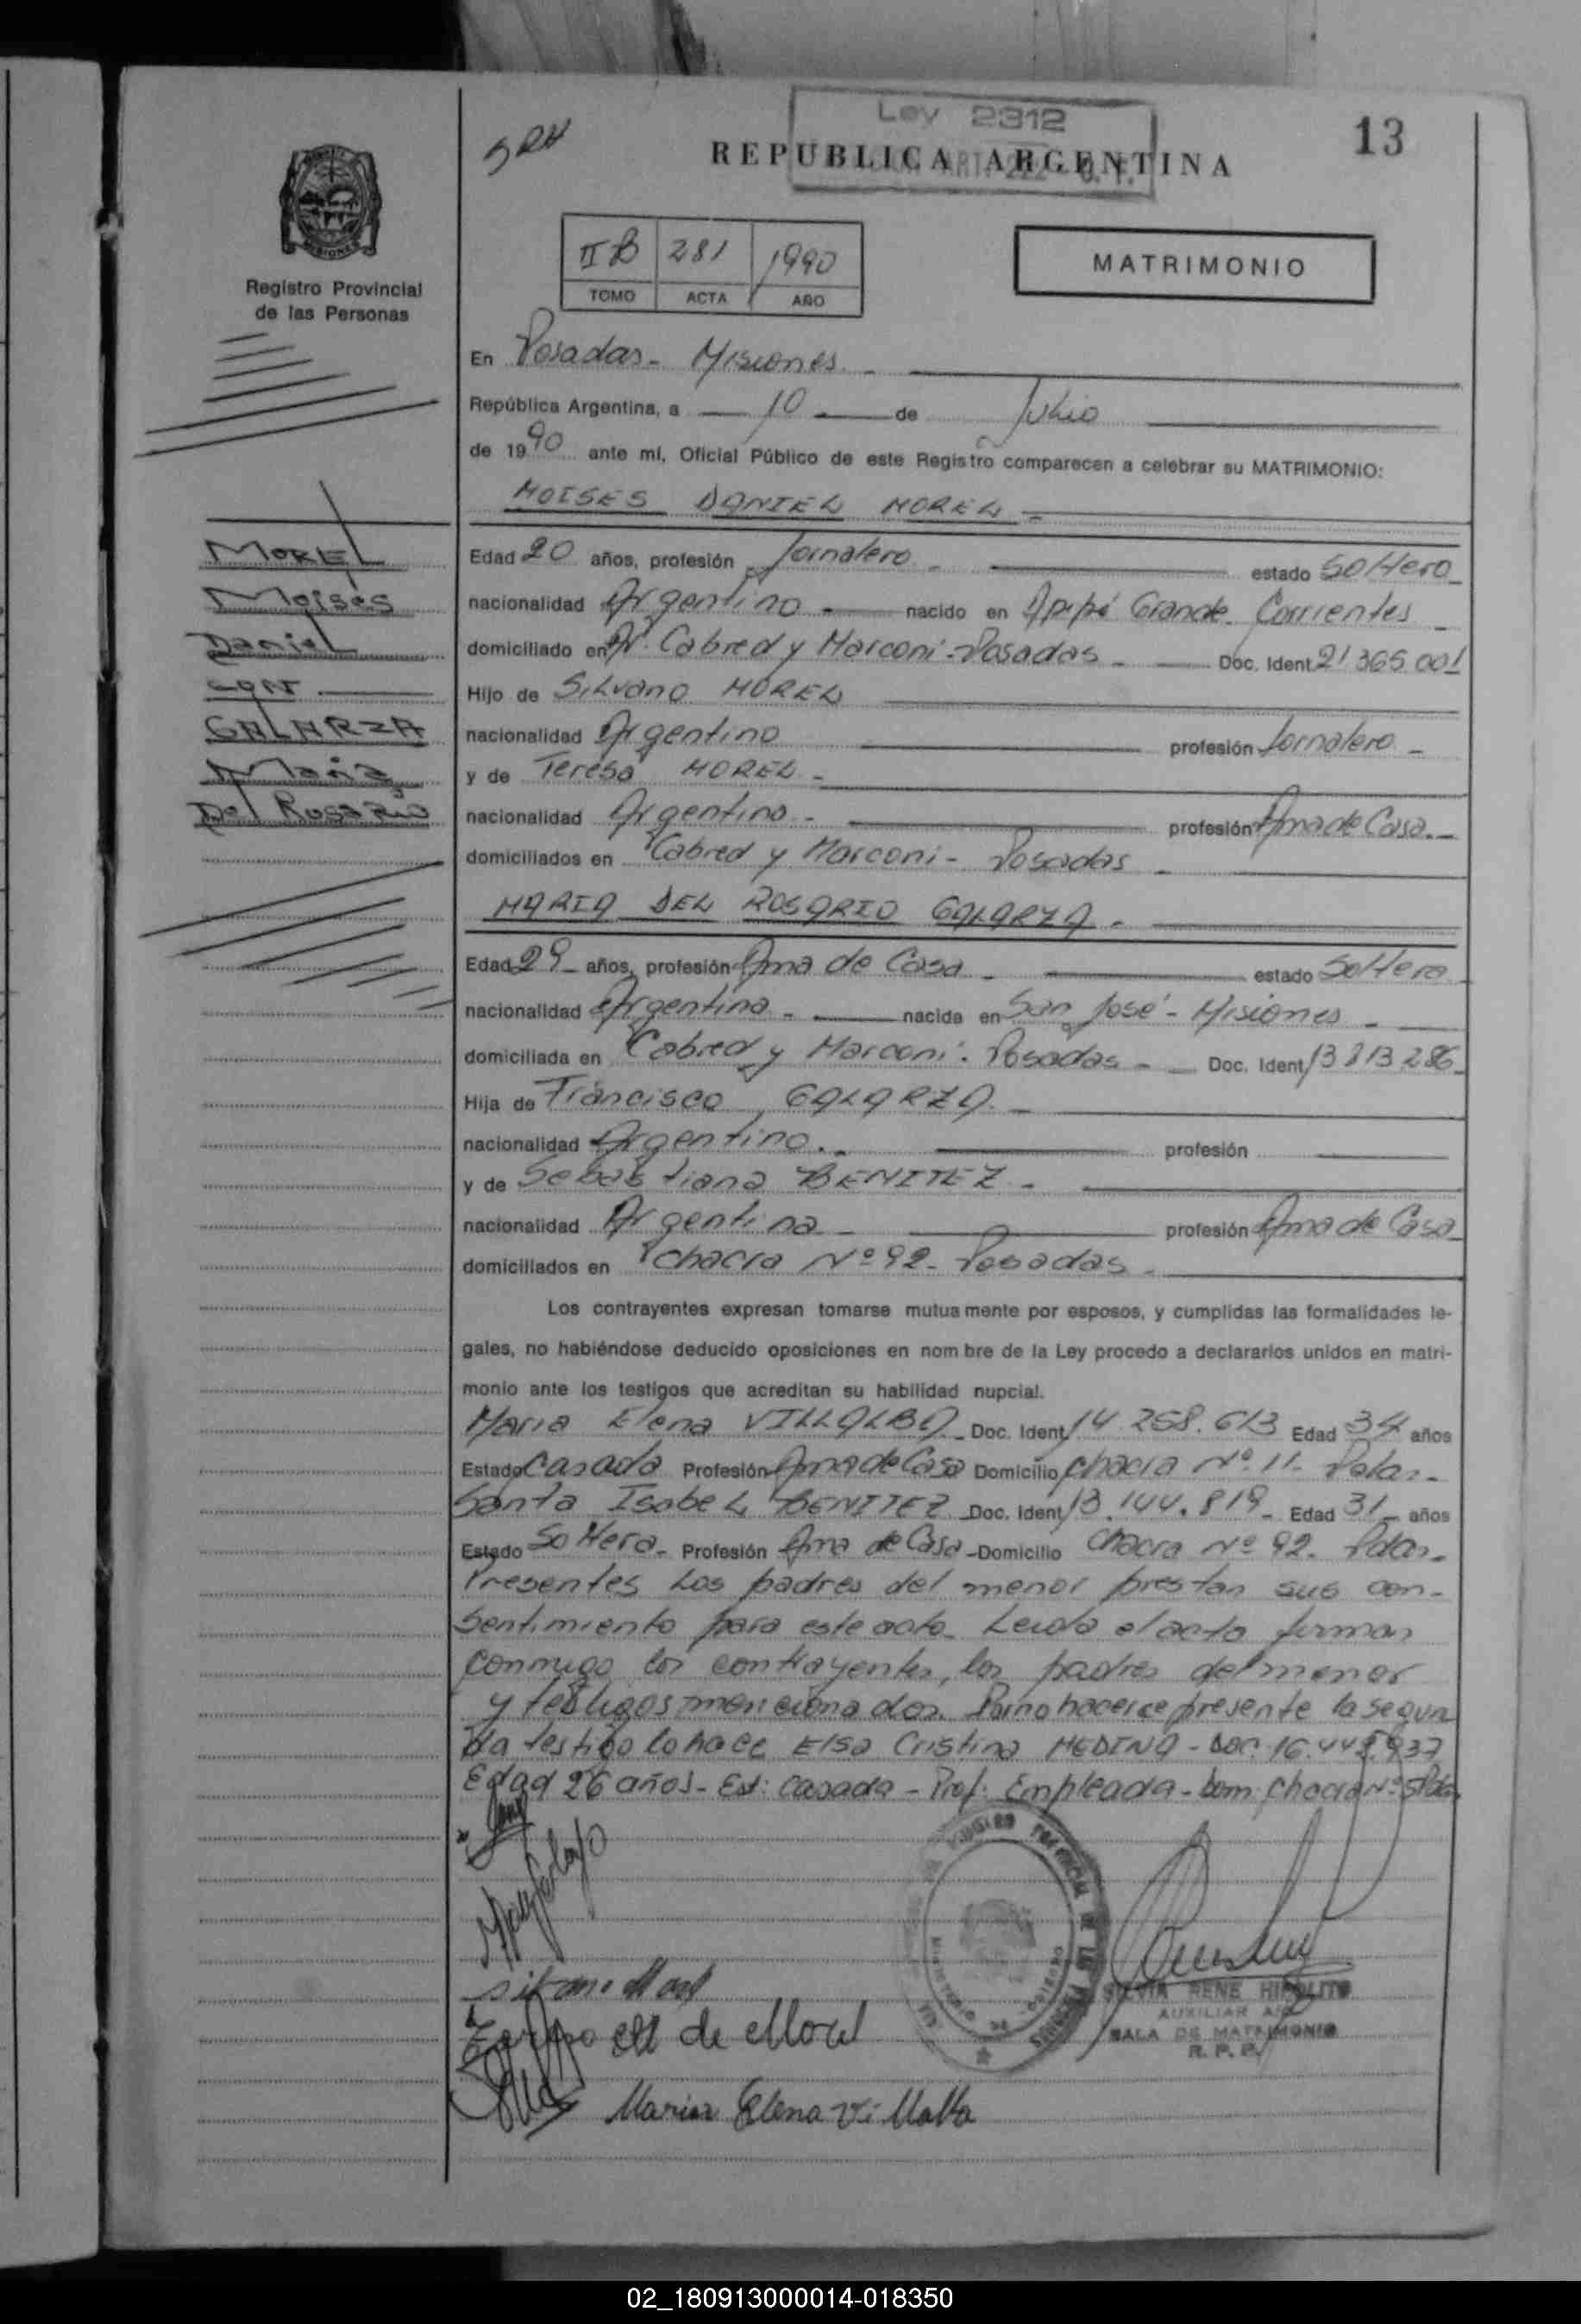 SRH
Ley 2312
REPUBLICA ARGENTINA
13
II B 281 1990
TOMO ACTA AÑO
MATRIMONIO
MISIONES
Registro Provincial
de las Personas
En Posadas - Misiones. -
República Argentina, a 10 de Julio
de 1990 ante mi, Oficial Público de este Registro comparecen a celebrar su MATRIMONIO:
MOISES DANIEL MOREL -
MOREL
Moisés
Daniel
con
GALARZA
María
Del Rosario
Edad 20 años, profesión Jornalero - estado Soltero -
nacionalidad Argentino - nacido en Apipé Grande Corrientes -
domiciliado en Av. Cabred y Marconi - Posadas - Doc. Ident 21 365 001
Hijo de Silvano MOREL
nacionalidad Argentino profesión Jornalero -
y de Teresa MOREL -
nacionalidad Argentina - profesión Ama de Casa. -
domiciliados en Cabred y Marconi - Posadas -
MARIA DEL ROSARIO GALARZA -
Edad 29 - años, profesión Ama de Casa - estado Soltera
nacionalidad Argentina - nacida en San José - Misiones -
domiciliada en Cabred y Marconi - Posadas - Doc. Ident 13 813 286
Hija de Francisco GALARZA -
nacionalidad Argentino. - profesión
y de Sebastiana BENITEZ -
nacionalidad Argentina - profesión Ama de Casa
domiciliados en Chacra Nº 92 - Posadas -
Los contrayentes expresan tomarse mutuamente por esposos, y cumplidas las formalidades le-
gales, no habiéndose deducido oposiciones en nombre de la Ley procedo a declararlos unidos en matri-
monio ante los testigos que acreditan su habilidad nupcial.
Maria Elena VILLALBA - Doc. Ident 14.258.613 Edad 34 años
Estado Casada Profesión Ama de Casa Domicilio Chacra Nº 11 - Pdas. -
Santa Isabel BENITEZ Doc. Ident 13.144.819 - Edad 31 - años
Estado Soltera - Profesión Ama de Casa - Domicilio Chacra Nº 92 - Pdas. -
Presentes los padres del menor prestan sus con-
sentimiento para este acto - Leida el acta firman
conmigo los contrayentes, los padres del menor
y testigos mencionados. Por no hacerce presente la segun
da testigo lo hace Elsa Cristina MEDINA - Doc. 16.445.937
Edad 26 años - Est: Casada - Prof: Empleada - Dom: Chacra Nº 5 Pdas
Silvano Morel
de Morel
Maria Elena Villalba
SILVIA RENE HIPOLITO
AUXILIAR
SALA DE MATRIMONIO
R. P. P.
02_180913000014-018350